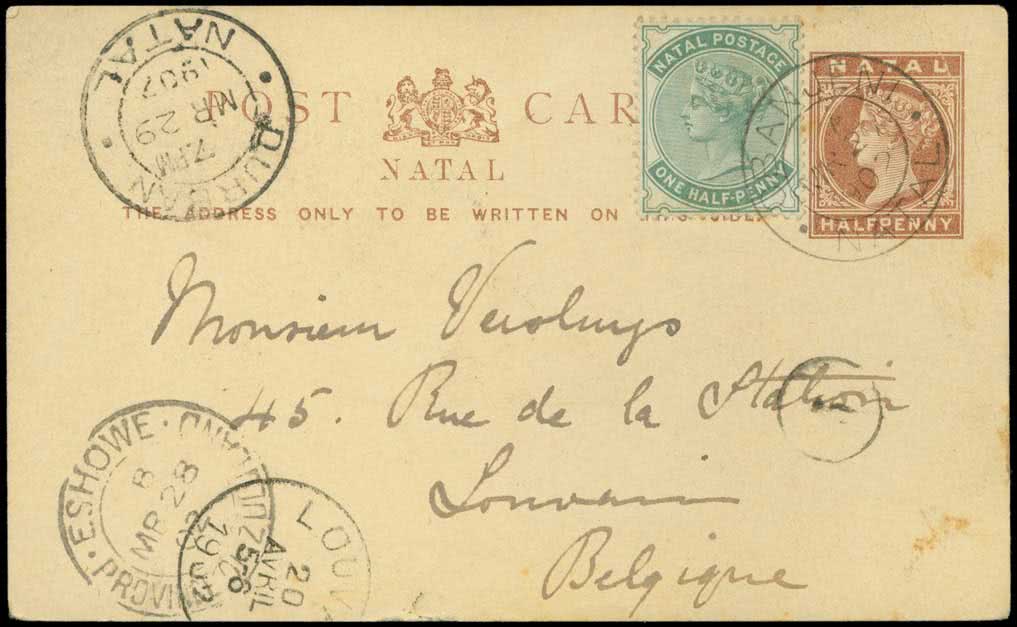 POST CAR
NATAL
THE ADDRESS ONLY TO BE WRITTEN ON THIS SIDE.
NATAL POSTAGE
ONE HALF-PENNY
NATAL
HALFPENNY
NATAL
DURBAN
7 PM
MR 29
1902
NATAL
Monsieur
45. Rue de la Station
Louvain
Belgique
ESHOWE
B
MR 28
02
PROVIN
LOUV
5-6
20
AVRIL
190